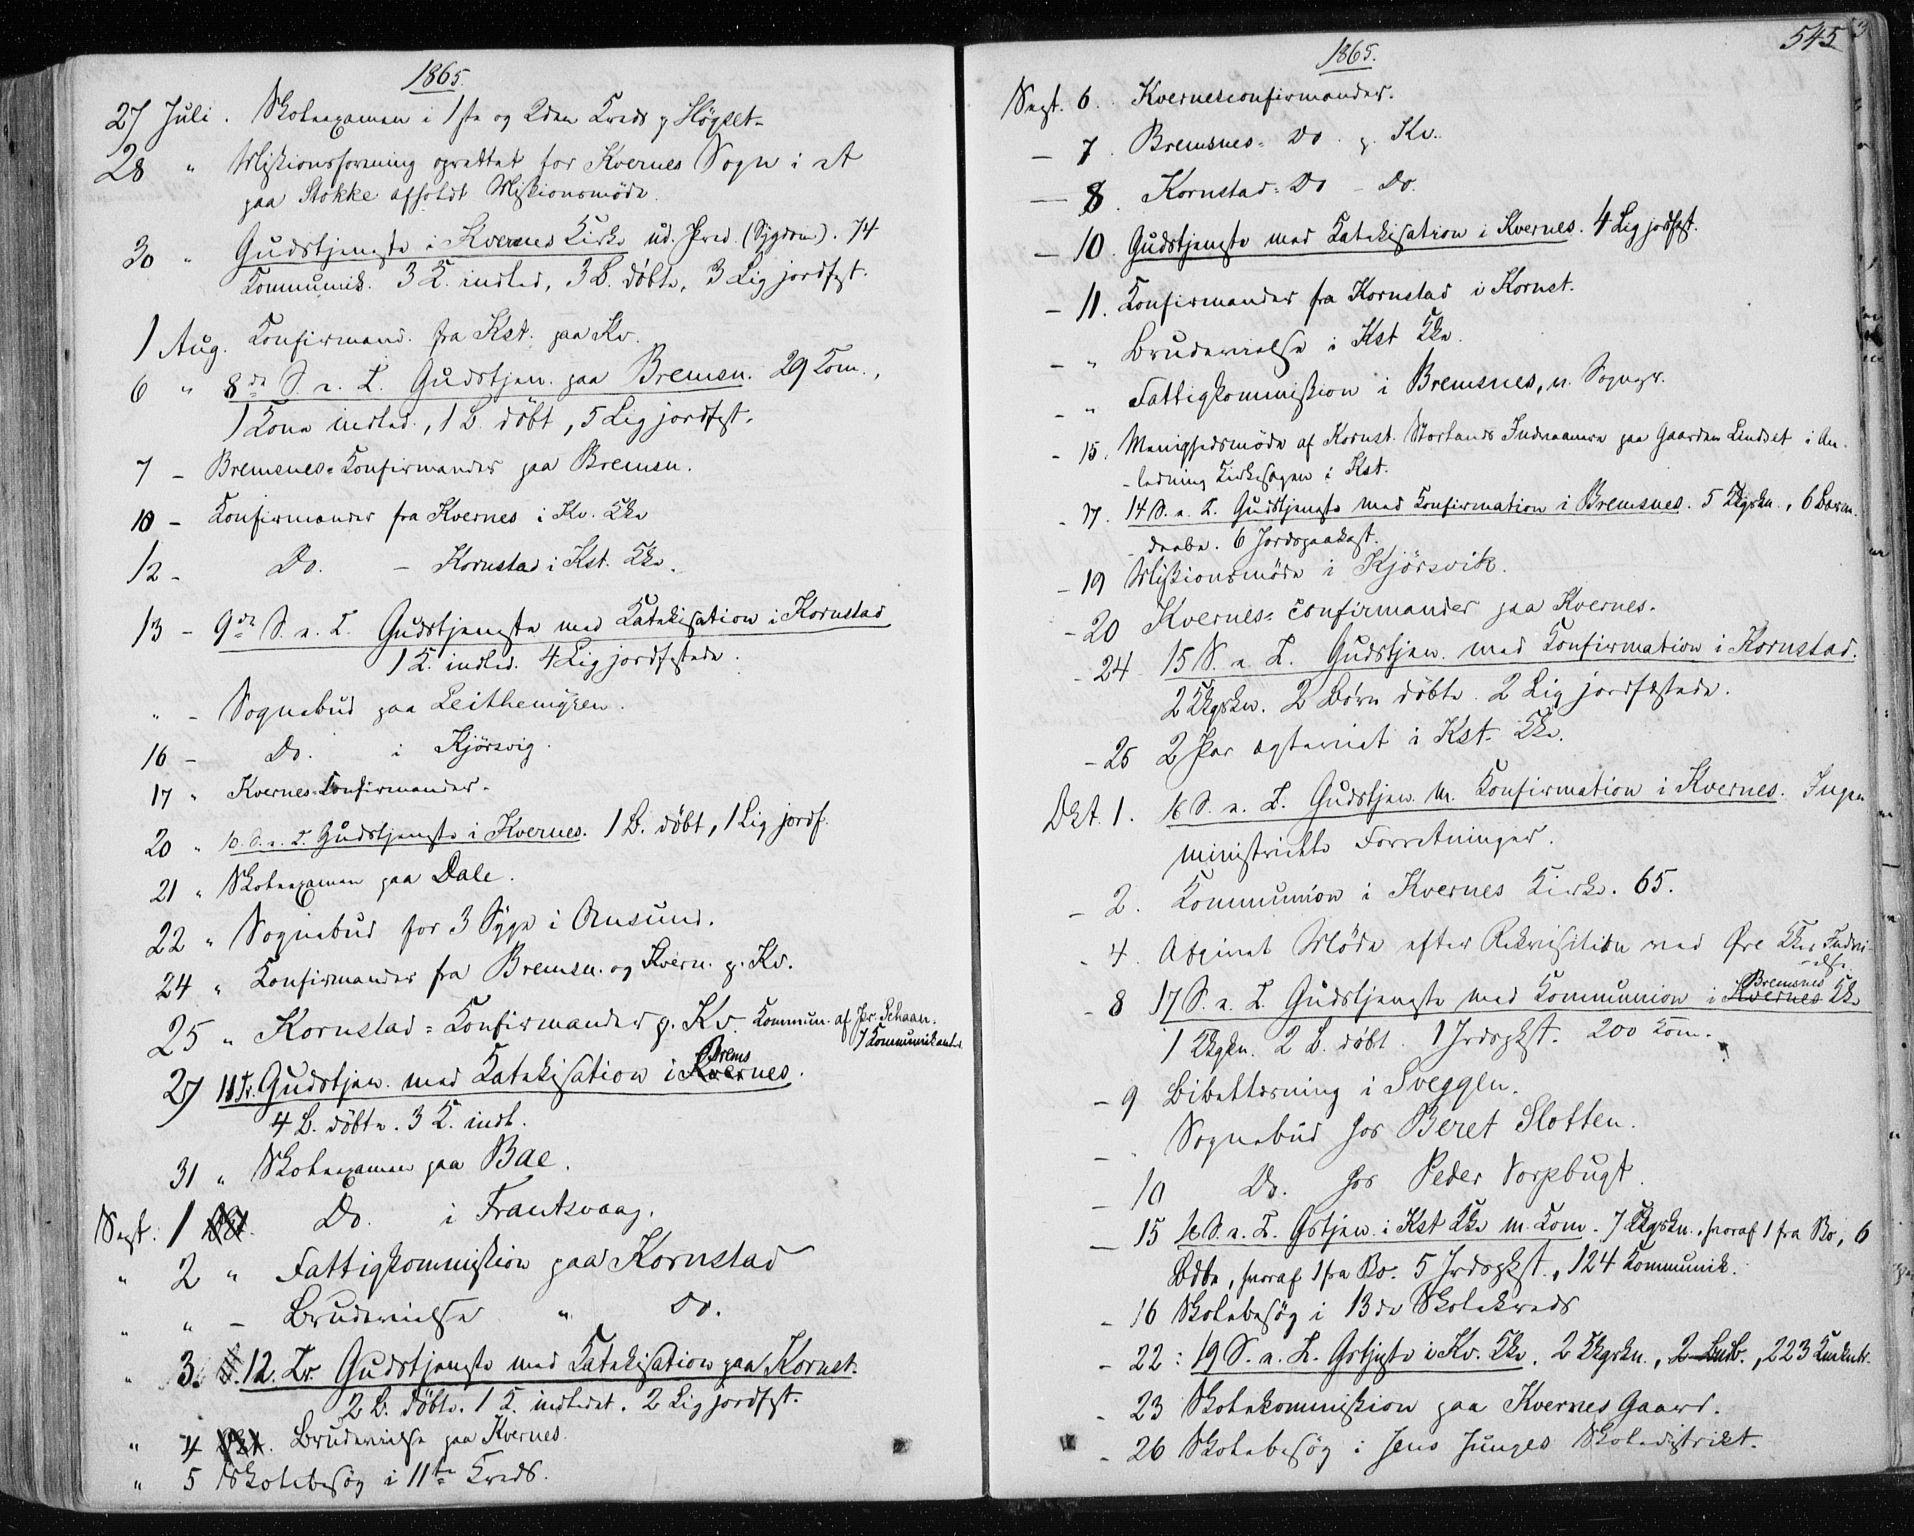 1865.
27 Juli. Skoleexamen i 1ste og 2den Kreds p. Högset.
28 " Missionsforening oprettet for Kvernes Sogn i et
paa Stokke afholdt Missionsmöde.
30 " Gudstjeneste i Kvernes Kirke ud. Præd. (Sygdom). 74
Kommunik. 3 K. indled, 3 B. döbte, 3 Lig jordfest.
1 Aug. Konfirmand. fra Kst. paa Kv.
6 " 8de S. e. T. Gudstjen. paa Bremsn. 29 Kom.,
1 Kone indled., 1 B. döbt, 5 Lig jordfest.
7 - Bremsnes-Konfirmander paa Bremsn.
10 - Konfirmander fra Kvernes i Kv. Kke
12 - Do. - Kornstad i Kst. Kke.
13 - 9de S. e. T. Gudstjeneste med Katekisation i Kornstad
1 K. indled. 4 Lig jordfestede.
" - Sognebud paa
16 - Do. i Kjörsvig.
17 " Kvernes-Konfirmander.
20 " 10. S. e. T. Gudstjeneste i Kvernes. 1 B. döbt, 1 Lig jordf.
21 " Skoleexamen paa Dale.
22 " Sognebud for 3 Syge i Ansund.
24 " Konfirmander fra Bremsn. og Kvern. p. Kv.
25 " Kornstad-Konfirmander p. Kv. Kommun. af Pr. Schaan.
7 Kommunikanter
27 11 Tr. Gudstjen. med Katekisation i Bremsnes.
4 B. döbte. 3 K. indl.
31 " Skoleexamen paa Bae.
Sept. 1 Do. i Frantsvaag.
" 2 " Fattigkommission paa Kornstad
" " - Brudevielse " Do.
" 3. 12. Tr. Gudstjeneste med Katekisation paa Kornst.
2 B. döbte. 1 K. indledet. 2 Lig jordfest.
" 4 Brudevielse paa Kvernes.
" 5 Skolebesög i 11te Kreds.
1865.
545
Sept. 6. Kvernesconfirmander.
- 7. Bremsnes- Do. p. Kv.
- 8. Kornstad- Do - Do.
- 10. Gudstjeneste med Katekisation i Kvernes. 4 Lig jordfest.
- 11. Konfirmander fra Kornstad i Kornst.
- " Brudevielse i Kst Kke.
- " Fattigkommission i Bremsnes, n. Sognepr.
- 15. Menighedsmöde af Kornst. Storlands Indvaanere paa Gaarden Lindset i An-
-ledning Kirkesagen i Kst.
- 17. 14 S. e. T. Gudstjeneste med Confirmation i Bremsnes. 5 Kkgskn., 6 Barne-
-daabe. 6 Jordspaakast.
- 19 Missionsmöde i Kjörsvik.
- 20 Kvernes-confirmander paa Kvernes.
- 24 15 S. e. T. Gudstjen. med Konfirmation i Kornstad.
2 Kkgskn. 2 Börn döbte. 2 Lig jordfæstede.
- 25 2 Par egteviet i Kst. Kke.
Okt. 1. 16 S. e. T. Gudstjen. m. Confirmation i Kvernes. Ingen
ministrielle Forretninger.
- 2. Kommunion i Kvernes Kirke. 65.
- 4. Afgivet Möde efter Rekvisition ved Öre Kkes Indvi-
-else
- 8 17 S. e. T. Gudstjeneste med Communion i Kvernes Bremsnes Kke
1 Kkgkn. 2 B. döbt. 1 Jrdspkst. 200 Kom.
- 9 Bibellæsning i Sveggen.
- . Sognebud hos Beret Slotten.
- 10 Do. hos Peder Vorpbugt.
- 15 18 S. e. T. Gstjen. i Kst Kke m. Kom. 7 Kkgskn., hvoraf 1 fra Bo, 6
Bdbe, hvoraf 1 fra Bo. 5 Jrdspkst., 124 Kommunik.
- 16 Skolebesög i 13de Skolekreds
- 22: 19 S. e. T. Gstjnste i Kv. Kke. 2 Kkgskn., 2 , 223
- 23 Skolekommission paa Kvernes Gaard.
- 26 Skolebesög i Jens Junges Skoledistrikt.